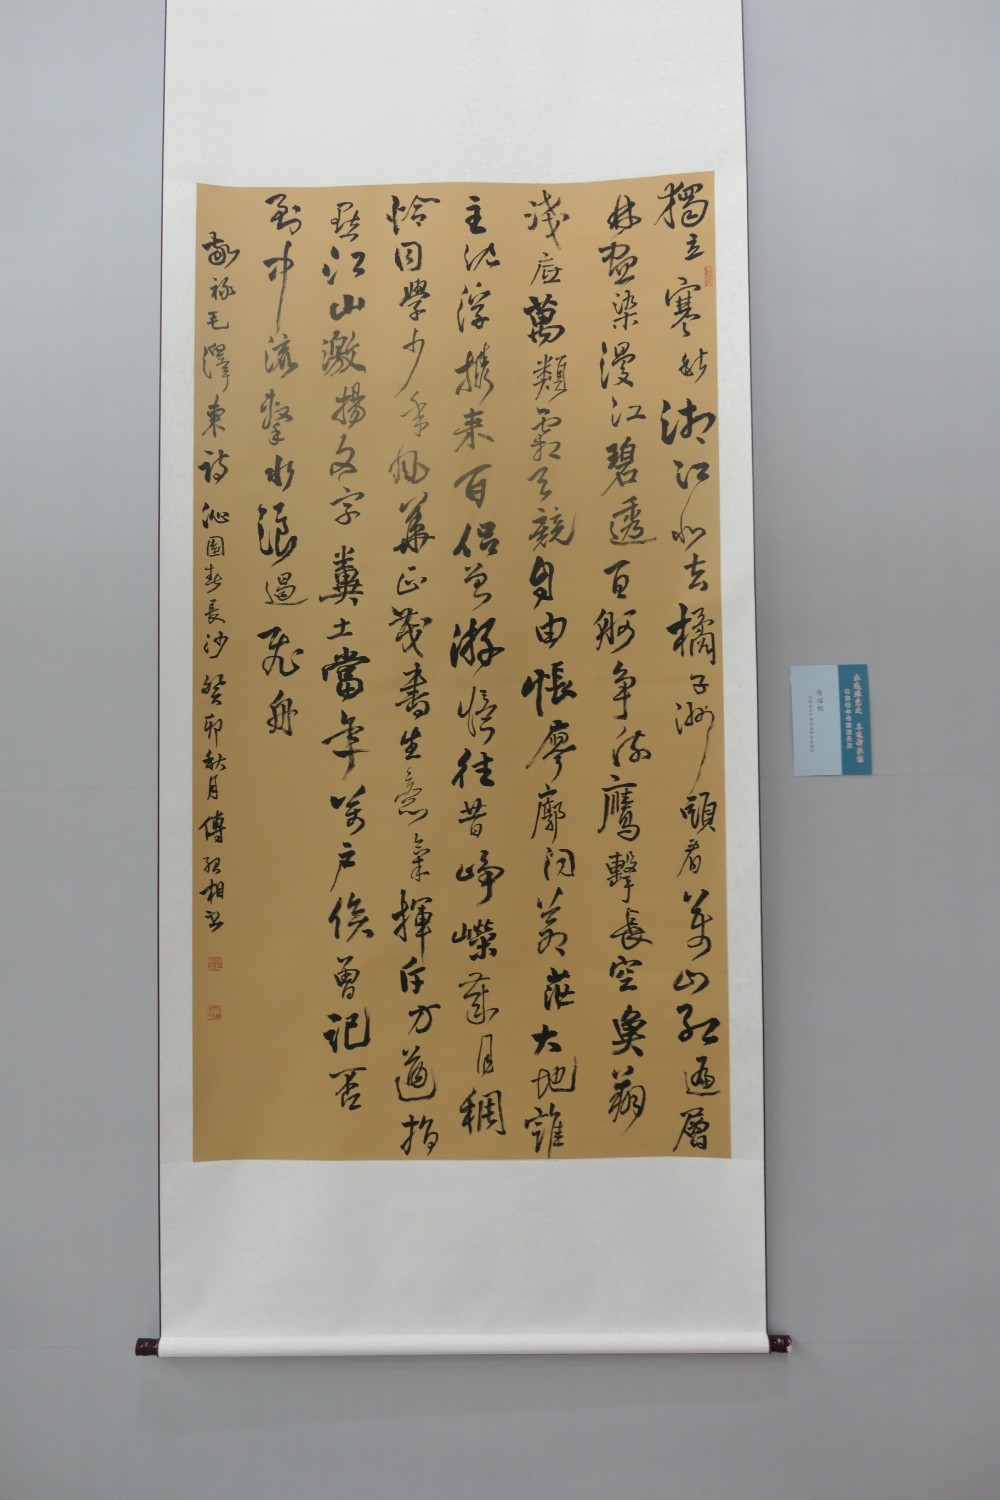 獨立寒秋湘江北去橘子洲頭看萬山紅遍層
林盡染漫江碧透百舸争流鷹擊長空魚翔
淺底萬類霜天競自由悵廖廓問蒼茫大地誰
主沈浮攜来百侣曾游憶往昔崢嶸歲月稠
恰同學少年風華正茂書生意氣揮斥方遒指
點江山激揚文字糞土當年萬户侯曾記否
到中流擊水浪遏飛舟
敬録毛澤東詩沁園春長沙癸卯秋月傅相书